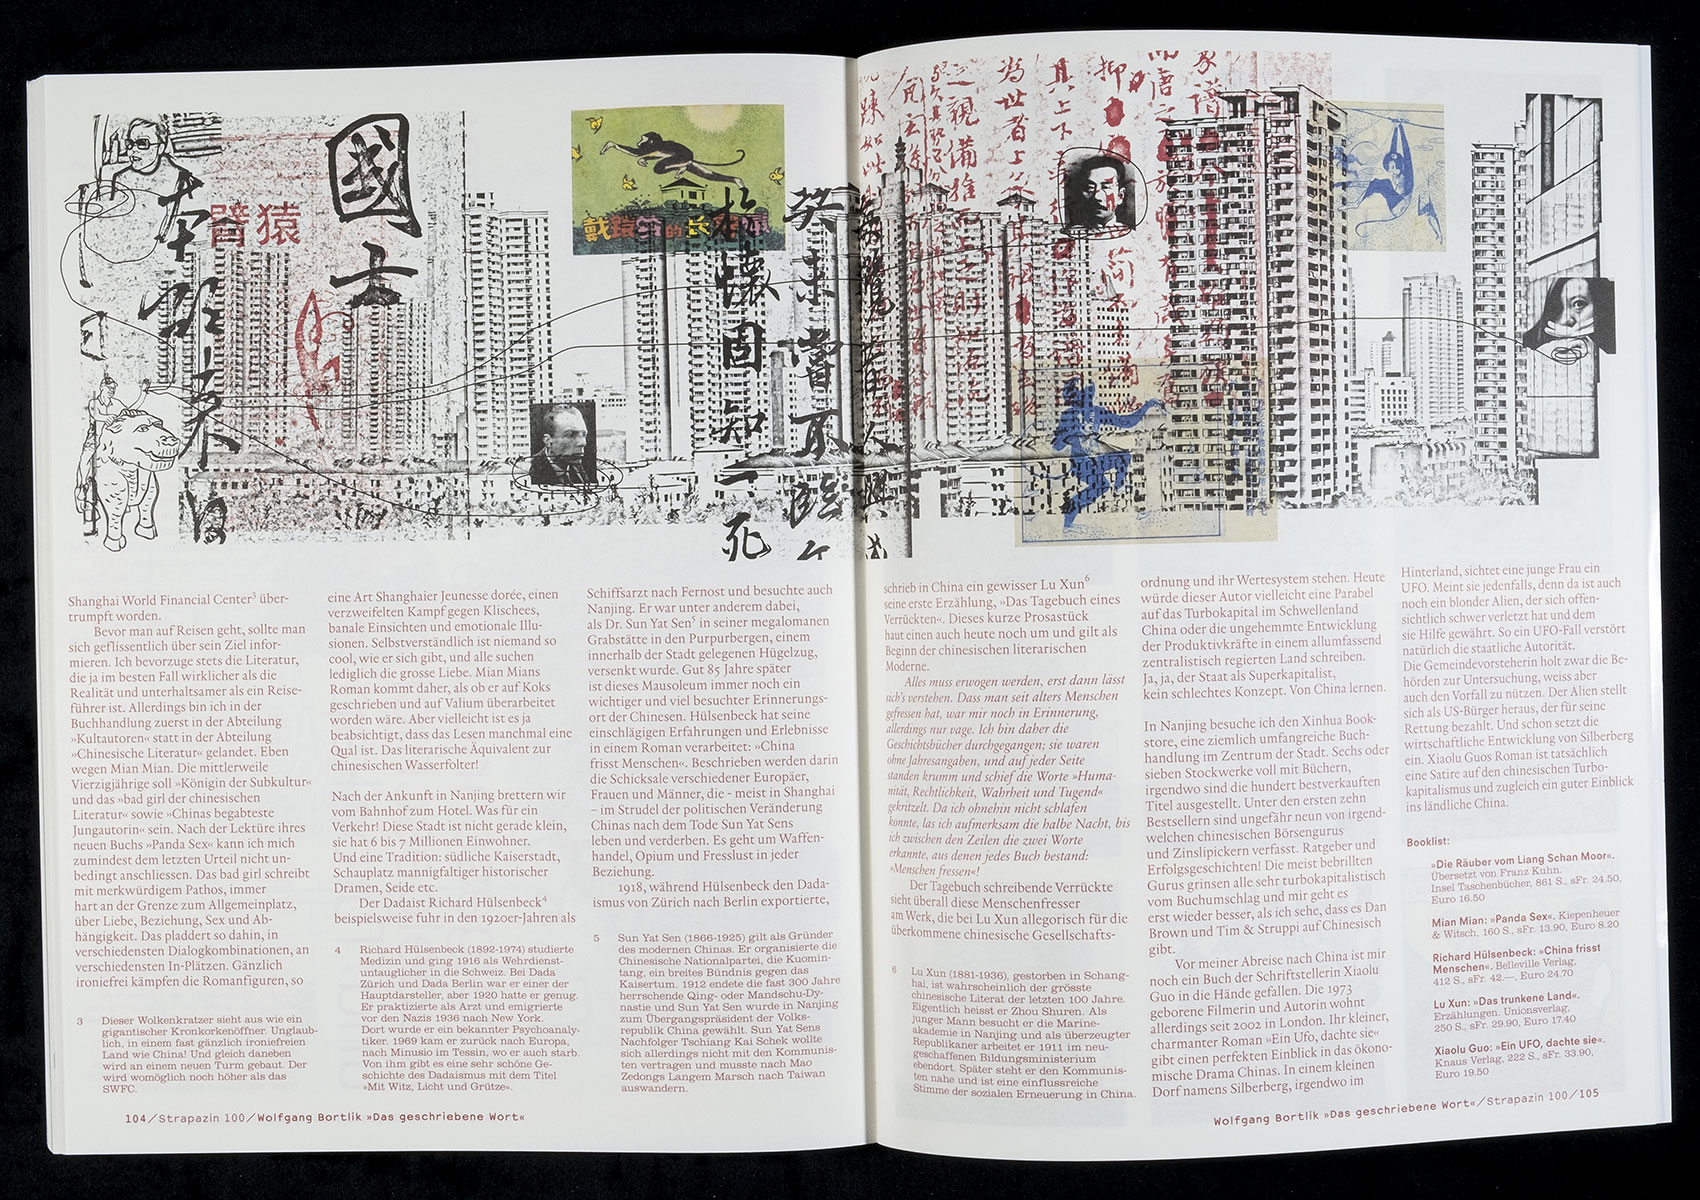 國士
臂猿
本
来
戴
的
懐
固
知
一
死
癸
未
當
Shanghai World Financial Center³ über-
trumpft worden.
Bevor man auf Reisen geht, sollte man
sich geflissentlich über sein Ziel infor-
mieren. Ich bevorzuge stets die Literatur,
die ja im besten Fall wirklicher als die
Realität und unterhaltsamer als ein Reise-
führer ist. Allerdings bin ich in der
Buchhandlung zuerst in der Abteilung
»Kultautoren« statt in der Abteilung
»Chinesische Literatur« gelandet. Eben
wegen Mian Mian. Die mittlerweile
Vierzigjährige soll »Königin der Subkultur«
und das »bad girl der chinesischen
Literatur« sowie »Chinas begabteste
Jungautorin« sein. Nach der Lektüre ihres
neuen Buchs »Panda Sex« kann ich mich
zumindest dem letzten Urteil nicht un-
bedingt anschliessen. Das bad girl schreibt
mit merkwürdigem Pathos, immer
hart an der Grenze zum Allgemeinplatz,
über Liebe, Beziehung, Sex und Ab-
hängigkeit. Das pladdert so dahin, in
verschiedensten Dialogkombinationen, an
verschiedensten In-Plätzen. Gänzlich
ironiefrei kämpfen die Romanfiguren, so
3 Dieser Wolkenkratzer sieht aus wie ein
gigantischer Kronkorkenöffner. Unglaub-
lich, in einem fast gänzlich ironiefreien
Land wie China! Und gleich daneben
wird an einem neuen Turm gebaut. Der
wird womöglich noch höher als das
SWFC.
eine Art Shanghaier Jeunesse dorée, einen
verzweifelten Kampf gegen Klischees,
banale Einsichten und emotionale Illu-
sionen. Selbstverständlich ist niemand so
cool, wie er sich gibt, und alle suchen
lediglich die grosse Liebe. Mian Mians
Roman kommt daher, als ob er auf Koks
geschrieben und auf Valium überarbeitet
worden wäre. Aber vielleicht ist es ja
beabsichtigt, dass das Lesen manchmal eine
Qual ist. Das literarische Äquivalent zur
chinesischen Wasserfolter!
Nach der Ankunft in Nanjing brettern wir
vom Bahnhof zum Hotel. Was für ein
Verkehr! Diese Stadt ist nicht gerade klein,
sie hat 6 bis 7 Millionen Einwohner.
Und eine Tradition: südliche Kaiserstadt,
Schauplatz mannigfaltiger historischer
Dramen, Seide etc.
Der Dadaist Richard Hülsenbeck⁴
beispielsweise fuhr in den 1920er-Jahren als
4 Richard Hülsenbeck (1892-1974) studierte
Medizin und ging 1916 als Wehrdienst-
untauglicher in die Schweiz. Bei Dada
Zürich und Dada Berlin war er einer der
Hauptdarsteller, aber 1920 hatte er genug.
Er praktizierte als Arzt und emigrierte
vor den Nazis 1936 nach New York.
Dort wurde er ein bekannter Psychoanaly-
tiker. 1969 kam er zurück nach Europa,
nach Minusio im Tessin, wo er auch starb.
Von ihm gibt es eine sehr schöne Ge-
schichte des Dadaismus mit dem Titel
»Mit Witz, Licht und Grütze«.
Schiffsarzt nach Fernost und besuchte auch
Nanjing. Er war unter anderem dabei,
als Dr. Sun Yat Sen⁵ in seiner megalomanen
Grabstätte in den Purpurbergen, einem
innerhalb der Stadt gelegenen Hügelzug,
versenkt wurde. Gut 85 Jahre später
ist dieses Mausoleum immer noch ein
wichtiger und viel besuchter Erinnerungs-
ort der Chinesen. Hülsenbeck hat seine
einschlägigen Erfahrungen und Erlebnisse
in einem Roman verarbeitet: »China
frisst Menschen«. Beschrieben werden darin
die Schicksale verschiedener Europäer,
Frauen und Männer, die - meist in Shanghai
– im Strudel der politischen Veränderung
Chinas nach dem Tode Sun Yat Sens
leben und verderben. Es geht um Waffen-
handel, Opium und Fresslust in jeder
Beziehung.
1918, während Hülsenbeck den Dada-
ismus von Zürich nach Berlin exportierte,
5 Sun Yat Sen (1866-1925) gilt als Gründer
des modernen Chinas. Er organisierte die
Chinesische Nationalpartei, die Kuomin-
tang, ein breites Bündnis gegen das
Kaisertum. 1912 endete die fast 300 Jahre
herrschende Qing- oder Mandschu-Dy-
nastie und Sun Yat Sen wurde in Nanjing
zum Übergangspräsident der Volks-
republik China gewählt. Sun Yat Sens
Nachfolger Tschiang Kai Schek wollte
sich allerdings nicht mit den Kommunis-
ten vertragen und musste nach Mao
Zedongs Langem Marsch nach Taiwan
auswandern.
104/Strapazin 100/Wolfgang Bortlik »Das geschriebene Wort«
schrieb in China ein gewisser Lu Xun⁶
seine erste Erzählung, »Das Tagebuch eines
Verrückten«. Dieses kurze Prosastück
haut einen auch heute noch um und gilt als
Beginn der chinesischen literarischen
Moderne.
Alles muss erwogen werden, erst dann lässt
sich's verstehen. Dass man seit alters Menschen
gefressen hat, war mir noch in Erinnerung,
allerdings nur vage. Ich bin daher die
Geschichtsbücher durchgegangen; sie waren
ohne Jahresangaben, und auf jeder Seite
standen krumm und schief die Worte »Huma-
nität, Rechtlichkeit, Wahrheit und Tugend«
gekritzelt. Da ich ohnehin nicht schlafen
konnte, las ich aufmerksam die halbe Nacht, bis
ich zwischen den Zeilen die zwei Worte
erkannte, aus denen jedes Buch bestand:
»Menschen fressen«!
Der Tagebuch schreibende Verrückte
sieht überall diese Menschenfresser
am Werk, die bei Lu Xun allegorisch für die
überkommene chinesische Gesellschafts-
6 Lu Xun (1881-1936), gestorben in Schang-
hai, ist wahrscheinlich der grösste
chinesische Literat der letzten 100 Jahre.
Eigentlich heisst er Zhou Shuren. Als
junger Mann besucht er die Marine-
akademie in Nanjing und als überzeugter
Republikaner arbeitet er 1911 im neu-
geschaffenen Bildungsministerium
ebendort. Später steht er den Kommunis-
ten nahe und ist eine einflussreiche
Stimme der sozialen Erneuerung in China.
ordnung und ihr Wertesystem stehen. Heute
würde dieser Autor vielleicht eine Parabel
auf das Turbokapital im Schwellenland
China oder die ungehemmte Entwicklung
der Produktivkräfte in einem allumfassend
zentralistisch regierten Land schreiben.
Ja, ja, der Staat als Superkapitalist,
kein schlechtes Konzept. Von China lernen.
In Nanjing besuche ich den Xinhua Book-
store, eine ziemlich umfangreiche Buch-
handlung im Zentrum der Stadt. Sechs oder
sieben Stockwerke voll mit Büchern,
irgendwo sind die hundert bestverkauften
Titel ausgestellt. Unter den ersten zehn
Bestsellern sind ungefähr neun von irgend-
welchen chinesischen Börsengurus
und Zinslipickern verfasst. Ratgeber und
Erfolgsgeschichten! Die meist bebrillten
Gurus grinsen alle sehr turbokapitalistisch
vom Buchumschlag und mir geht es
erst wieder besser, als ich sehe, dass es Dan
Brown und Tim & Struppi auf Chinesisch
gibt.
Vor meiner Abreise nach China ist mir
noch ein Buch der Schriftstellerin Xiaolu
Guo in die Hände gefallen. Die 1973
geborene Filmerin und Autorin wohnt
allerdings seit 2002 in London. Ihr kleiner,
charmanter Roman »Ein Ufo, dachte sie«
gibt einen perfekten Einblick in das ökono-
mische Drama Chinas. In einem kleinen
Dorf namens Silberberg, irgendwo im
Hinterland, sichtet eine junge Frau ein
UFO. Meint sie jedenfalls, denn da ist auch
noch ein blonder Alien, der sich offen-
sichtlich schwer verletzt hat und dem
sie Hilfe gewährt. So ein UFO-Fall verstört
natürlich die staatliche Autorität.
Die Gemeindevorsteherin holt zwar die Be-
hörden zur Untersuchung, weiss aber
auch den Vorfall zu nützen. Der Alien stellt
sich als US-Bürger heraus, der für seine
Rettung bezahlt. Und schon setzt die
wirtschaftliche Entwicklung von Silberberg
ein. Xiaolu Guos Roman ist tatsächlich
eine Satire auf den chinesischen Turbo-
kapitalismus und zugleich ein guter Einblick
ins ländliche China.
Booklist:
»Die Räuber vom Liang Schan Moor«,
Übersetzt von Franz Kuhn.
Insel Taschenbücher, 861 S., sFr. 24.50,
Euro 16.50
Mian Mian: »Panda Sex«, Kiepenheuer
& Witsch, 160 S., sFr. 13.90, Euro 8.20
Richard Hülsenbeck: »China frisst
Menschen«, Belleville Verlag,
412 S., sFr. 42.—, Euro 24.70
Lu Xun: »Das trunkene Land«,
Erzählungen. Unionsverlag,
250 S., sFr. 29.90, Euro 17.40
Xiaolu Guo: »Ein UFO, dachte sie«.
Knaus Verlag, 222 S., sFr. 33.90,
Euro 19.50
Wolfgang Bortlik »Das geschriebene Wort«/Strapazin 100/105